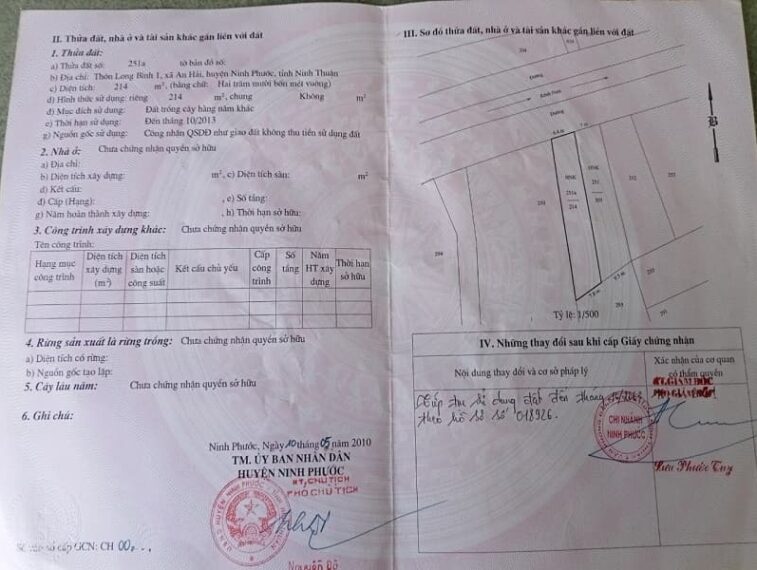 II. Thửa đất, nhà ở và tài sản khác gắn liền với đất
1. Thửa đất:
a) Thửa đất số: 251a tờ bản đồ số:
b) Địa chỉ: Thôn Long Bình 1, xã An Hải, huyện Ninh Phước, tỉnh Ninh Thuận
c) Diện tích: 214 m², (bằng chữ: Hai trăm mười bốn mét vuông)
d) Hình thức sử dụng: riêng 214 m², chung Không m²
đ) Mục đích sử dụng: Đất trồng cây hàng năm khác
e) Thời hạn sử dụng: Đến tháng 10/2013
g) Nguồn gốc sử dụng: Công nhận QSDĐ như giao đất không thu tiền sử dụng đất
2. Nhà ở: Chưa chứng nhận quyền sở hữu
a) Địa chỉ:
b) Diện tích xây dựng: m², c) Diện tích sàn: m²
d) Kết cấu:
đ) Cấp (Hạng): , e) Số tầng:
g) Năm hoàn thành xây dựng: , h) Thời hạn sở hữu:
3. Công trình xây dựng khác: Chưa chứng nhận quyền sở hữu
Tên công trình:
Hạng mục công trình
Diện tích xây dựng (m²)
Diện tích sàn hoặc công suất
Kết cấu chủ yếu
Cấp công trình
Số tầng
Năm HT xây dựng
Thời hạn sở hữu
4. Rừng sản xuất là rừng trồng: Chưa chứng nhận quyền sở hữu
a) Diện tích có rừng:
b) Nguồn gốc tạo lập:
5. Cây lâu năm: Chưa chứng nhận quyền sở hữu
6. Ghi chú:
Ninh Phước, Ngày 10 tháng 05 năm 2010
TM. ỦY BAN NHÂN DÂN
HUYỆN NINH PHƯỚC
KT, CHỦ TỊCH
PHÓ CHỦ TỊCH
Số vào sổ cấp GCN: CH 00
III. Sơ đồ thửa đất, nhà ở và tài sản khác gắn liền với đất
Đường
Đường
B
HNK
251a
214
HNK
251
252
253
Tỷ lệ: 1/500
IV. Những thay đổi sau khi cấp Giấy chứng nhận
Nội dung thay đổi và cơ sở pháp lý
Xác nhận của cơ quan có thẩm quyền
KT.GIÁM ĐỐC
PHÓ GIÁM ĐỐC
theo hồ sơ số 018926.
CHI NHÁNH
NINH PHƯỚC
Lưu Phước Tuy